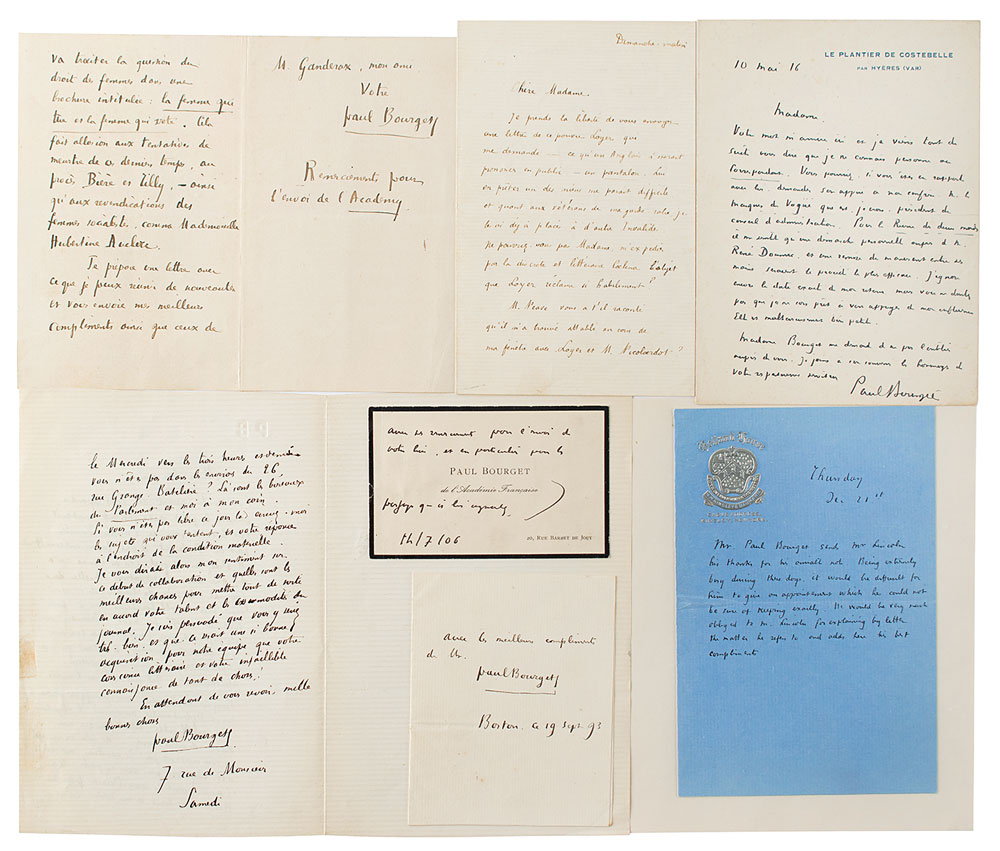 va traiter la question du
droit de femmes dans une
brochure intitulée : la femme qui
tue et la femme qui vote. Cela
fait allusion aux tentatives de
meurtre de ces derniers temps, au
procès Bière et Tilly, – ainsi
qu'aux revendications des
femmes socialistes, comme Mademoiselle
Hubertine Auclerc.
Je prépare une lettre avec
ce que je peux réunir de nouveautés
et vous envoie mes meilleurs
compliments ainsi que ceux de
M. Ganderax, mon ami
Votre
Paul Bourget
Remerciements pour
l'envoi de l'Academy
Dimanche matin
Chère Madame,
Je prends la liberté de vous envoyer
une lettre de ce pauvre Loyer qui
me demande – ce qu'un Anglais n'oserait
prononcer en public – un pantalon. Lui
en pièce un des miens me parait difficile
et quant aux vétérans de ma garde robe, je
les ai déjà placé à d'autres Invalides.
Ne pourriez vous pas Madame,
par la discrète et l'objet
que Loyer réclame
M. vous a t'il raconté
qu'il m'a trouvé attablé au coin de
ma fenêtre avec Loyer et M. Nicolardot ?
LE PLANTIER DE COSTEBELLE
PAR HYÈRES (VAR)
10 mai 16
Madame,
Votre mot m'arrive ici et je viens tout de
suite vous dire que je ne connais personne au
Correspondant. Vous pourriez, si vous êtes en rapport
avec lui, demander son appui à mon confrère M. le
Marquis de Vogüé qui est, je crois, président du
conseil d'administration. Pour la Revue des deux mondes
il me semble qu'une démarche personnelle auprès de M.
René Doumic, et une remise du manuscrit entre ses
mains seraient le procédé le plus efficace. J'ignore
encore la date exacte de mon retour mais vous ne doutez
pas que je ne sois prêt à vous appuyer de mon influence
Elle est malheureusement bien petite.
Madame Bourget me demande de ne pas l'oublier
auprès de vous. Je joins à son souvenir les hommages de
votre respectueux serviteur
Paul Bourget
le Mercredi vers les trois heures et demie
vous n'êtes pas dans les environs du 26,
rue Grange Batelière ? Là sont les bureaux
du Parlement et moi à mon coin.
Si vous n'êtes pas libre ce jour là, envoyez-moi
les sujets qui vous tentent, et votre réponse
à l'endroit de la condition matérielle.
Je vous dirai alors mon sentiment sur
ce début de collaboration et quelles sont les
meilleurs chances pour mettre tout de suite
en accord votre talent et les commodités du
journal. Je suis persuadé que vous y serez
très bien, et que ce serait une si bonne
acquisition pour notre équipe que votre
conscience littéraire et votre infaillible
connaissance de tant de choses !
En attendant de vous revoir, mille
bonnes choses
Paul Bourget
7 rue de Monsieur
Samedi
avec ses remerciements pour l'envoi de
votre livre, et en particulier pour les
PAUL BOURGET
de l'Académie Française
passages qui
14/7/06
20, RUE BARBET DE JOUY
avec les meilleurs compliments
de Mr.
Paul Bourget
Boston, ce 19 Sept. 93
Thursday
Dec 21st
Mr Paul Bourget sends Mr Lincoln
his thanks for his amiable note. Being extremely
busy during these days, it would be difficult for
him to give an appointment which he could not
be sure of keeping exactly. He would be very much
obliged to Mr. Lincoln for explaining by letter
the matter he refers to and adds here his best
compliments